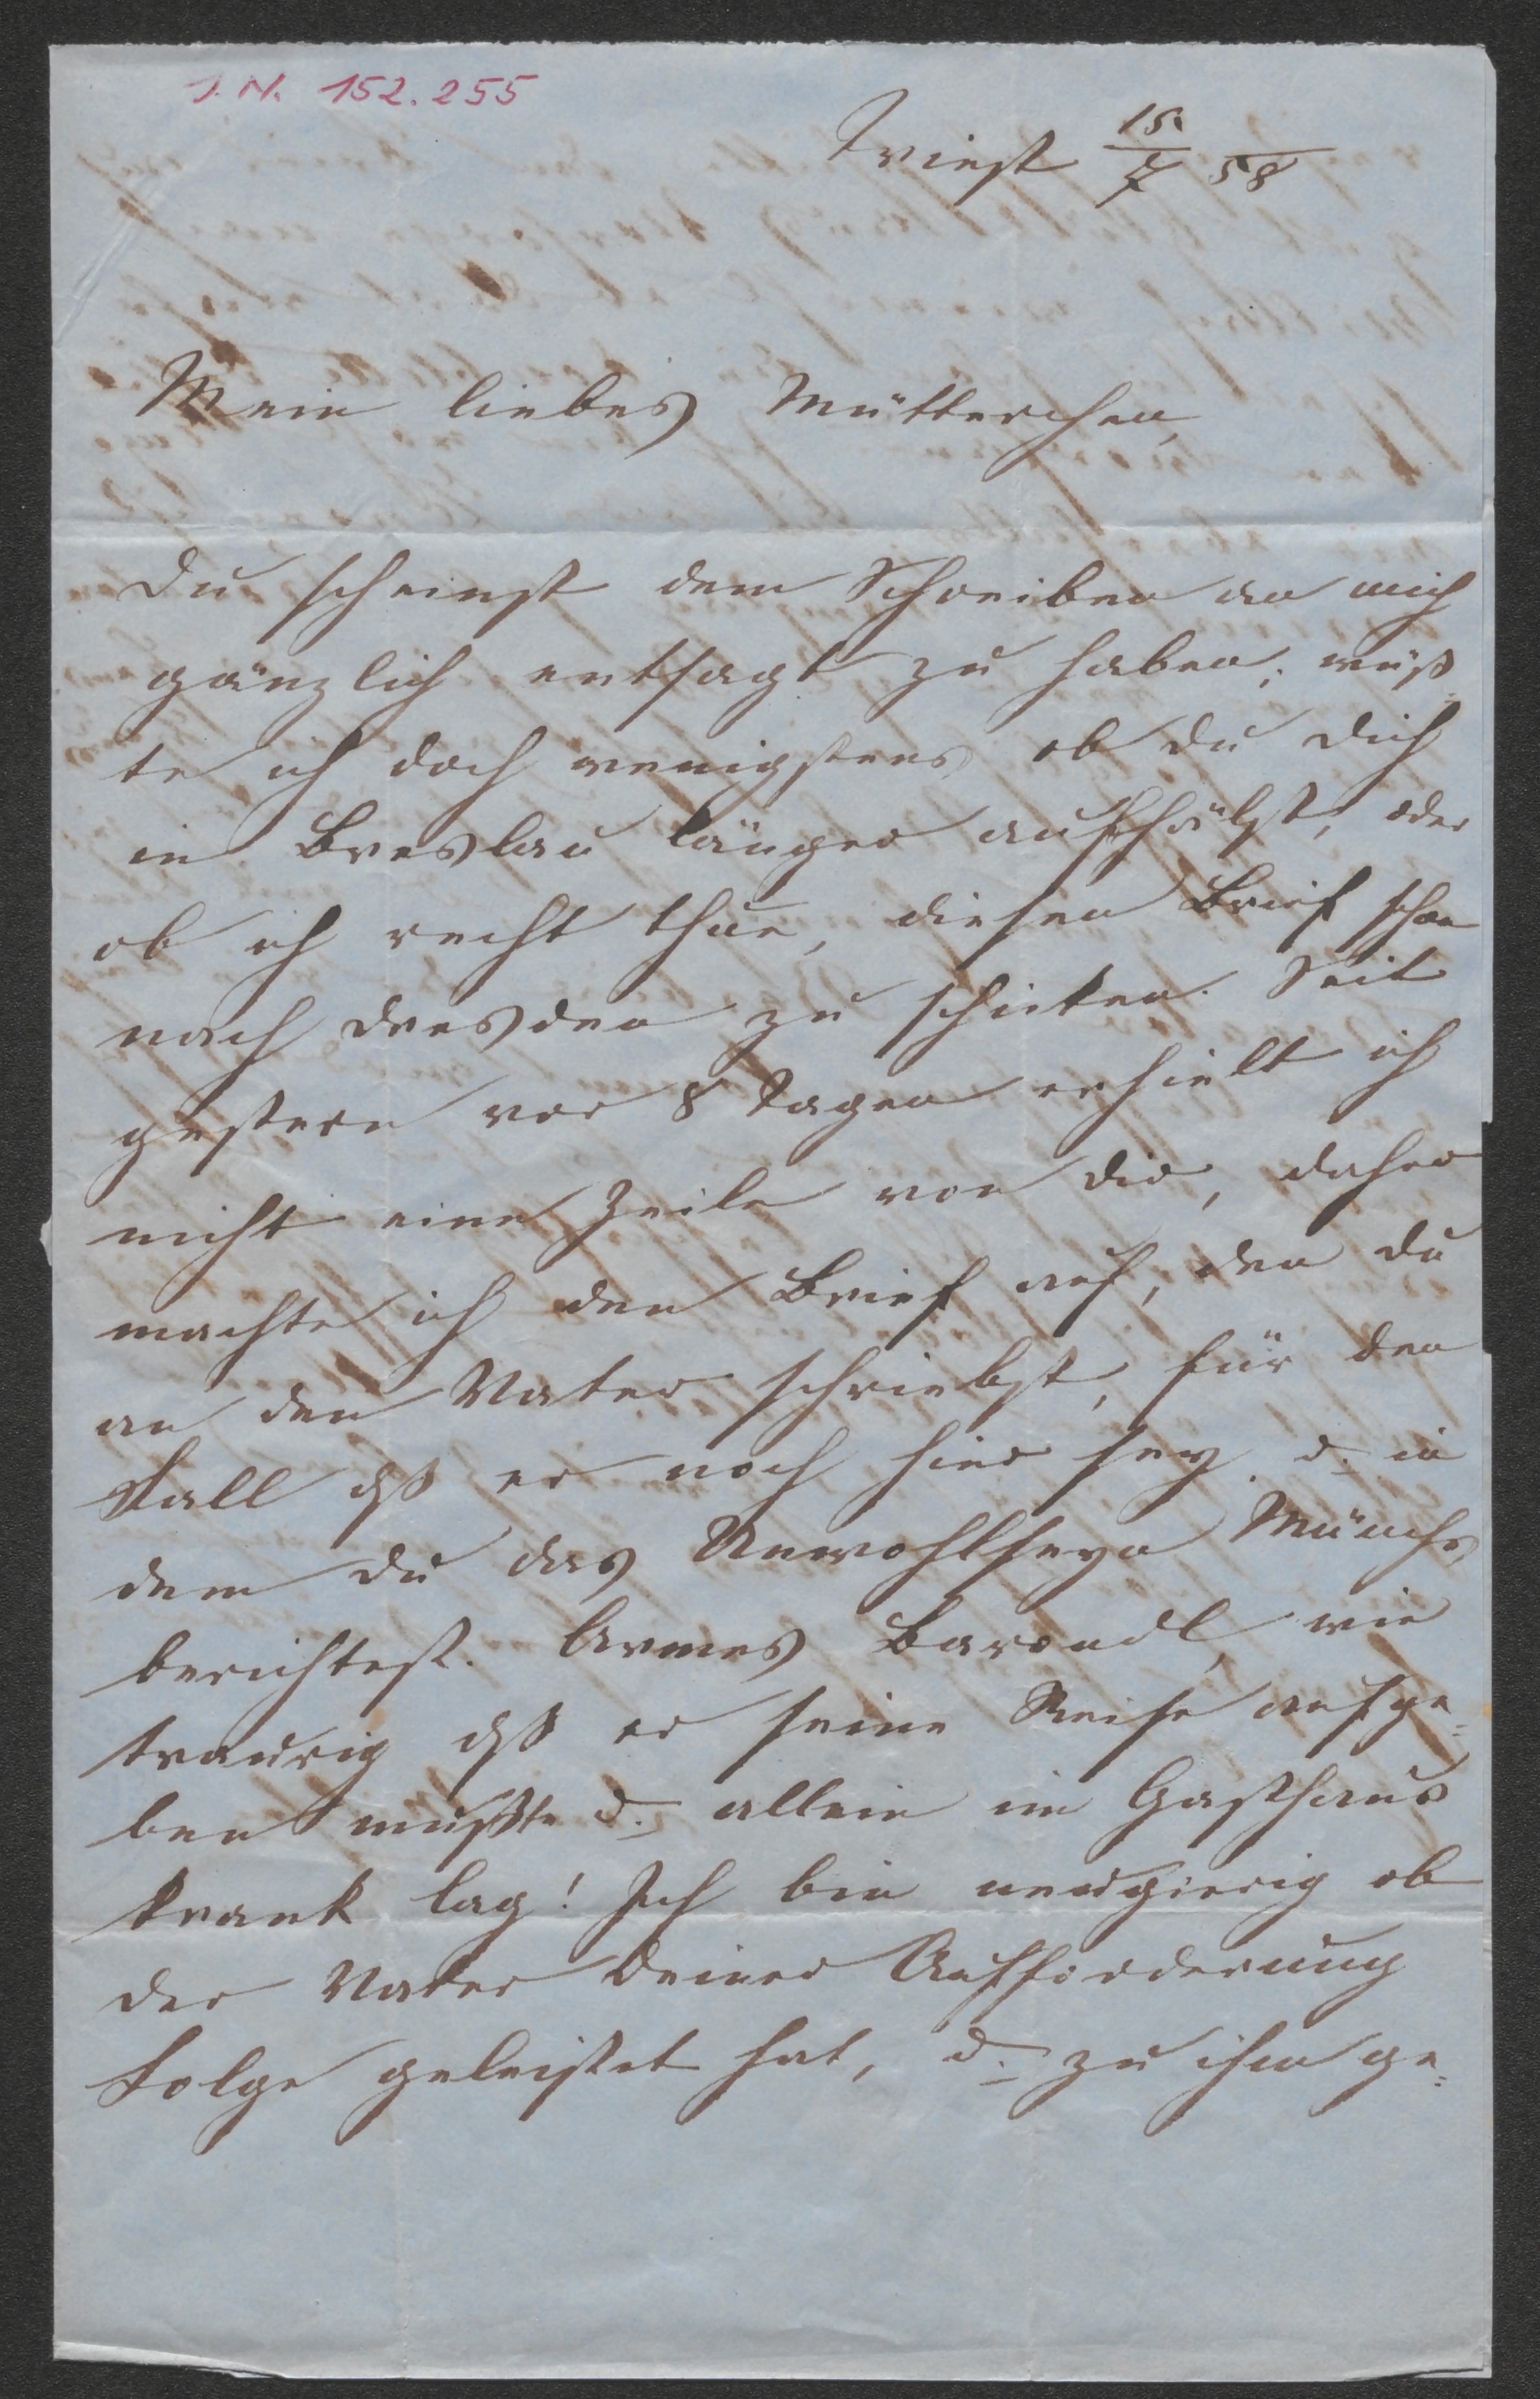 I. N. 152.255
Triest 15/7 58
Mein liebes Mütterchen,
Du scheinst dem Schreiben an mich
gänzlich entsagt zu haben; wüß
te ich doch wenigstens ob du dich
in Breslau länger aufhälst, oder
ob ich recht thue, diesen Brief schon
nach Dresden zu schicken. Seit
gestern vor 8 Tagen erhielt ich
nicht eine Zeile von dir, daher
machte ich den Brief auf, den du
an den Vater schriebst, für den
Fall dß er noch hier sey. u. in
dem du das Unwohlseyn Münchs
berichtest. Armes Barondl, wie
traurig dß er seine Reise aufge¬
ben mußte u. allein im Gasthaus
krank lag! Ich bin neugierig ob
der Vater Deiner Aufforderung
Folge geleistet hat, u. zu ihm ge¬